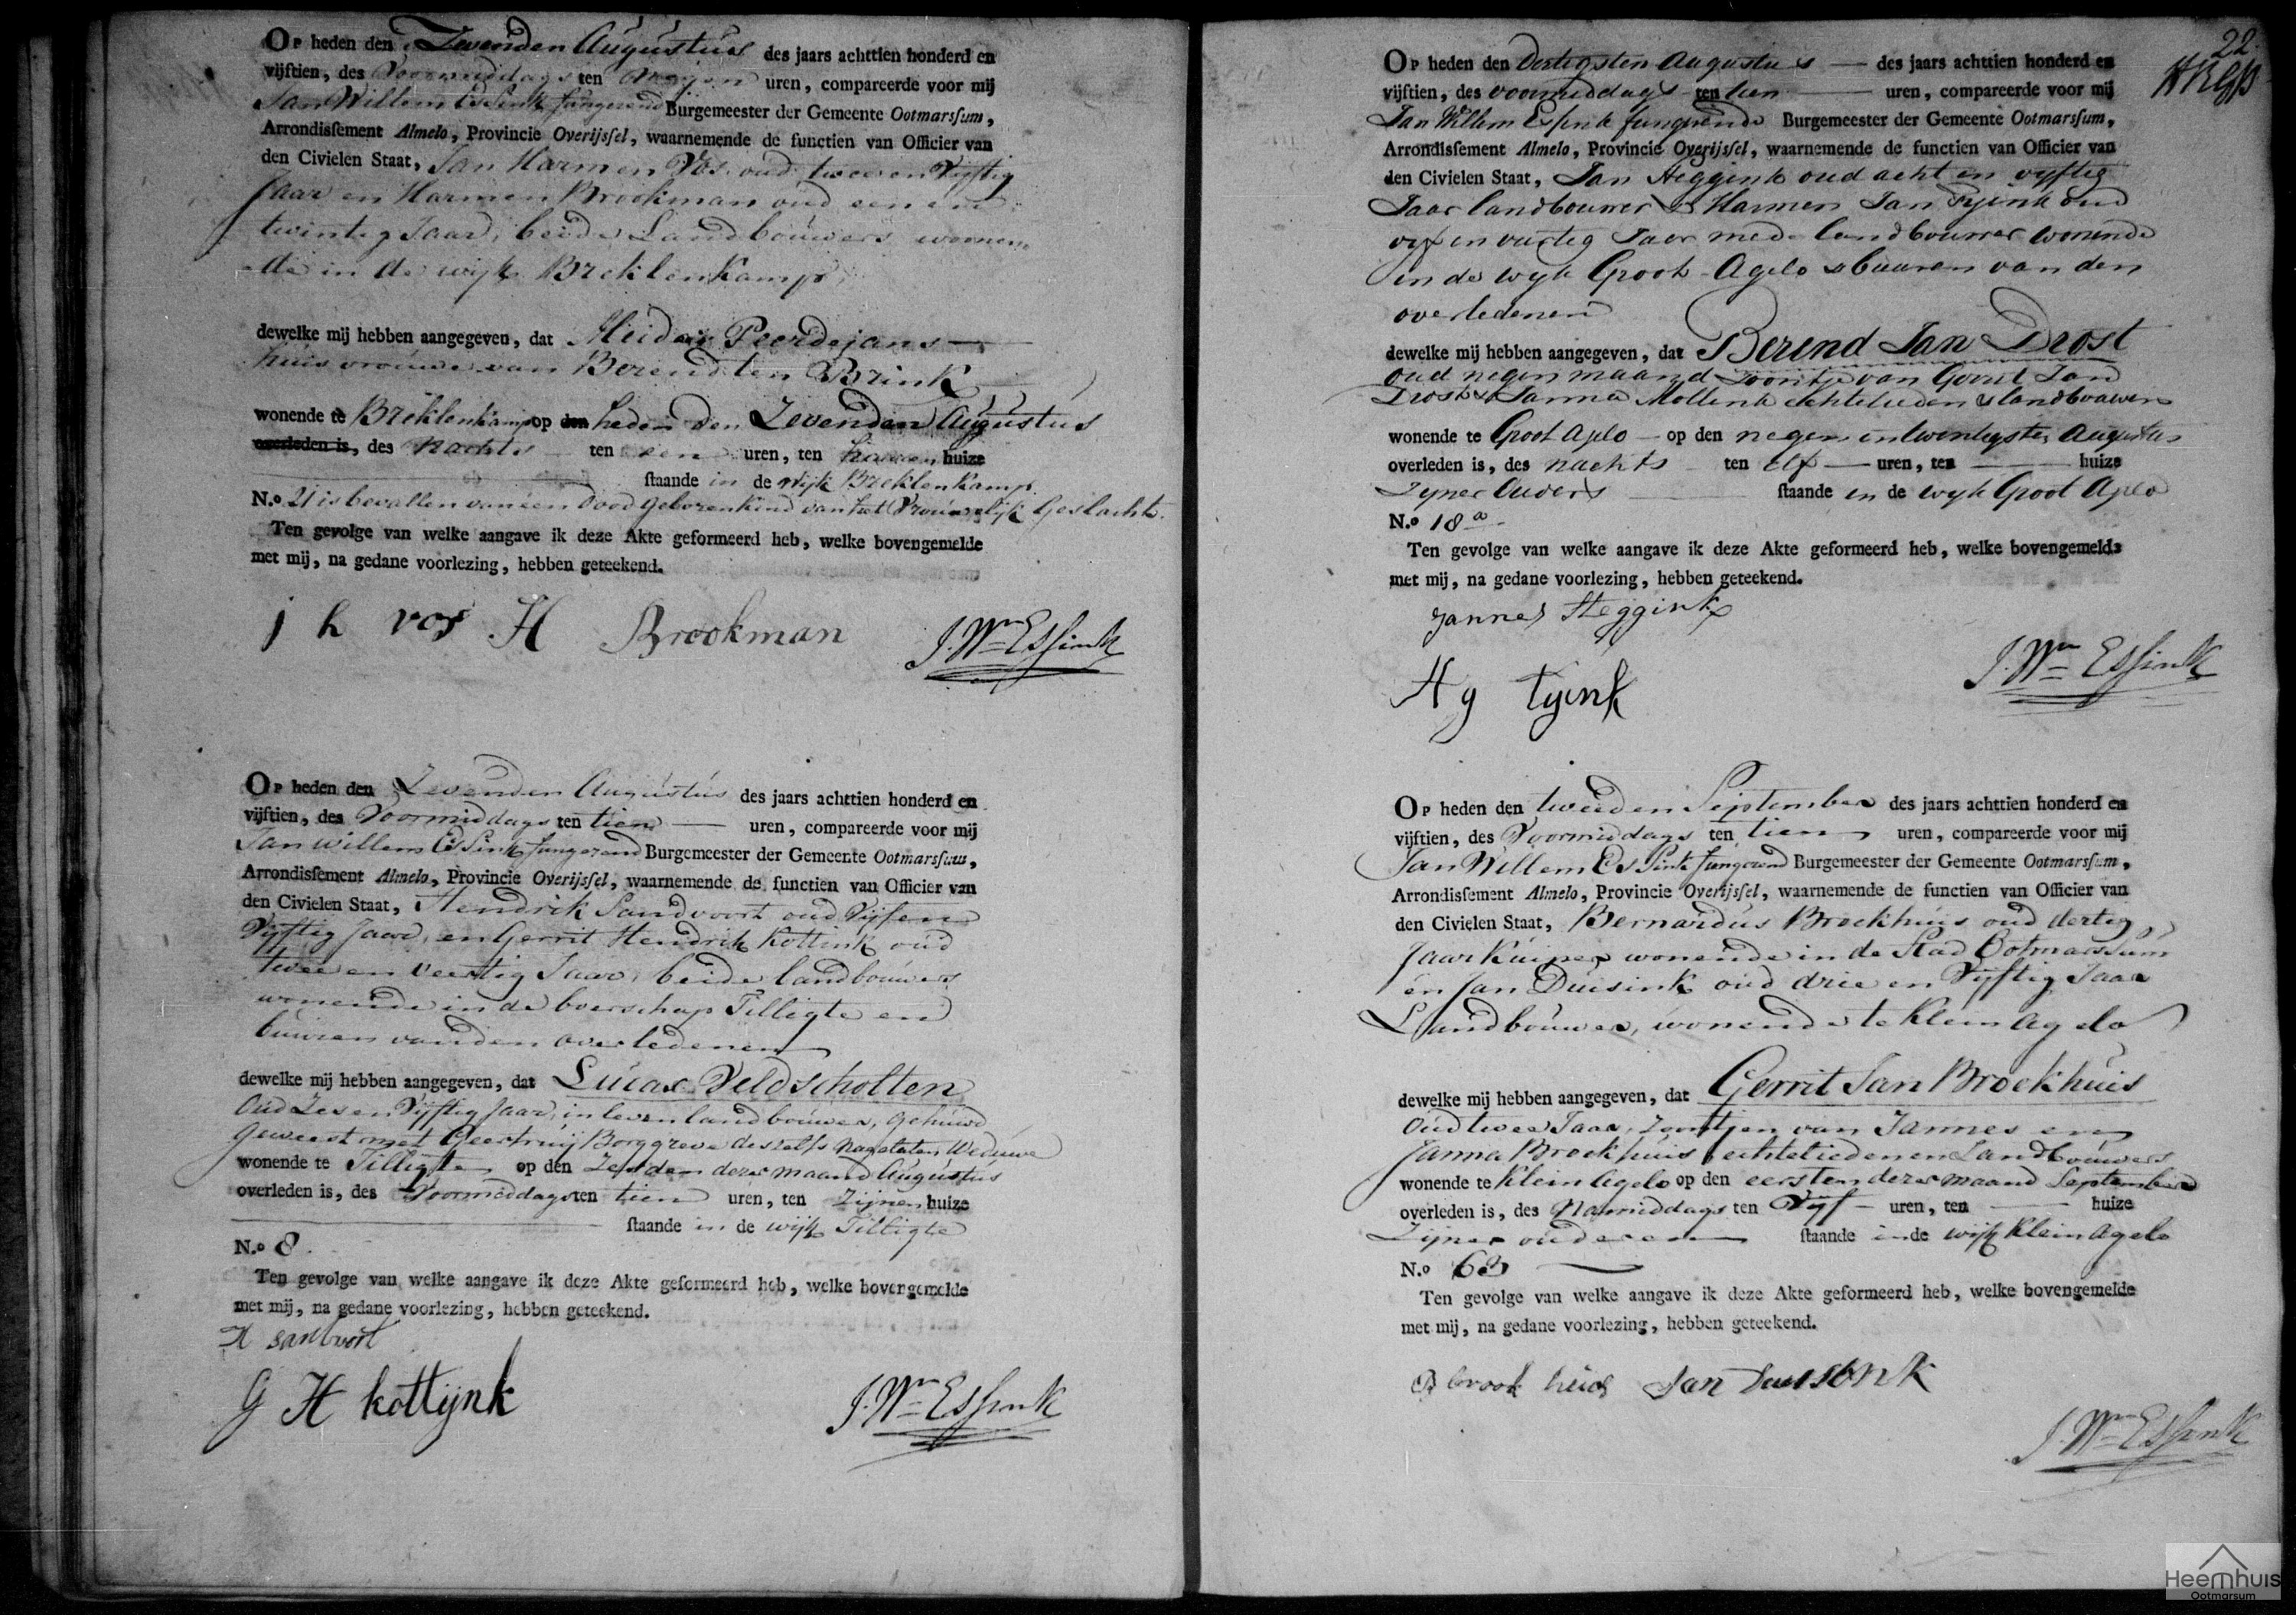 Op heden den Zevenden Augustus des jaars achttien honderd en
vijftien, des Voormiddags ten negen uren, compareerde voor mij
Jan Willem Essink fungerend Burgemeester der Gemeente Ootmarsſum,
Arrondisſement Almelo, Provincie Overijsſel, waarnemende de functien van Officier van
den Civielen Staat, Jan Harmen Vos oud twee en Vijftig
Jaar en Harmen Brookman oud een en
twintig Jaar, beide Landbouwers woonen
de in de wijk Breklenkamp,
dewelke mij hebben aangegeven, dat Peerdejans
huisvrouwe van Berend ten Brink
wonende te Breklenkamp op den heden den Zevenden Augustus
overleden is, des Nachts ten een uren, ten haren huize
ſtaande in de wijk Breklenkamp
N.o 21 is bevallen van een dood geboren kind van het Vrouwelijk Geslacht.
Ten gevolge van welke aangave ik deze Akte geformeerd heb, welke bovengemelde
met mij, na gedane voorlezing, hebben geteekend.
j h vos H Brookman J. Wm Essink
Op heden den Zevenden Augustus des jaars achttien honderd en
vijftien, des Voormiddags ten tien uren, compareerde voor mij
Jan Willem Essink fungerend Burgemeester der Gemeente Ootmarsſum,
Arrondisſement Almelo, Provincie Overijsſel, waarnemende de functien van Officier van
den Civielen Staat, Hendrik Sandvoort oud Vijf en
Vijftig Jaar, en Gerrit Hendrik Kottink oud
twee en veertig Jaar, beide landbouwers
wonende in de boerschap Tilligte en
buuren van den overledenen
dewelke mij hebben aangegeven, dat Lucas Veldscholten
Oud Zes en Vijftig Jaar, in leven landbouwer, gehuwd
geweest met Geertruij Borggreve deszelfs nagelaten Weduwe
wonende te Tilligte op den Zesden dezer maand Augustus
overleden is, des Voormiddags ten tien uren, ten Zijnen huize
ſtaande in de wijk Tilligte
N.o 8.
Ten gevolge van welke aangave ik deze Akte geformeerd heb, welke bovengemelde
met mij, na gedane voorlezing, hebben geteekend.
H sandvort
G H kottynk J. Wm Essink
22
Op heden den Dertigsten Augustus des jaars achttien honderd en
vijftien, des voormiddags ten tien uren, compareerde voor mij
Jan Willem Essink fungerende Burgemeester der Gemeente Ootmarsſum,
Arrondisſement Almelo, Provincie Overijsſel, waarnemende de functien van Officier van
den Civielen Staat, Jan Heggink oud acht en vyftig
Jaar landbouwer & Harmen Jan Tyink oud
vyf en veertig Jaar mede landbouwer wonende
in de wyk Groot Agelo & buuren van den
overledenen
dewelke mij hebben aangegeven, dat Berend Jan Drost
oud negen maand Zoontje van Gerrit Jan
Drost & Janna Mollink echtelieden & landbouwers
wonende te Groot Agelo op den negen en twentigsten Augustus
overleden is, des nachts ten elf uren, ten huize
Zyner Ouders ſtaande in de wyk Groot Agelo
N.o 18 a
Ten gevolge van welke aangave ik deze Akte geformeerd heb, welke bovengemelde
met mij, na gedane voorlezing, hebben geteekend.
Jannes Heggink
J. Wm Essink
H g tyink
Op heden den tweeden September des jaars achttien honderd en
vijftien, des Voormiddags ten tien uren, compareerde voor mij
Jan Willem Essink fungerend Burgemeester der Gemeente Ootmarsſum,
Arrondisſement Almelo, Provincie Overijsſel, waarnemende de functien van Officier van
den Civielen Staat, Bernardus Broekhuis oud dertig
Jaar Kuiper wonende in de Stad Ootmarssum
en Jan Duisink oud drie en Vijftig Jaar
Landbouwer, wonende te Klein Agelo
dewelke mij hebben aangegeven, dat Gerrit Jan Broekhuis
Oud twee Jaar, Zoontjen van Jannes en
Janna Broekhuis echtelieden en Landbouwers
wonende te Klein Agelo op den eersten dezer maand September
overleden is, des Namiddags ten Vijf uren, ten huize
Zijner ouderen ſtaande in de wijk Klein Agelo
N.o 63
Ten gevolge van welke aangave ik deze Akte geformeerd heb, welke bovengemelde
met mij, na gedane voorlezing, hebben geteekend.
B brook huis Jan Duisink
J. Wm Essink
Heemhuis
Ootmarsum